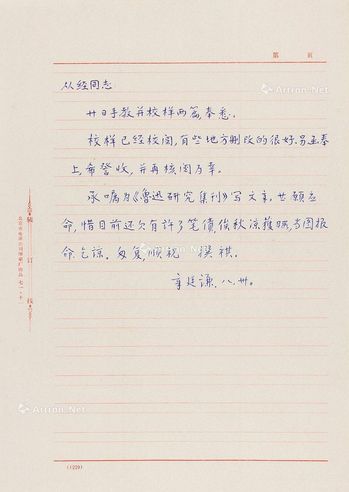 第 页
从经同志：
廿日手教并校样两篇奉悉。
校样已经校阅，有些地方删改的很好。另函奉
上，希督收，并再核阅为幸。
承嘱为《鲁迅研究集刊》写文章，甘愿应
命，惜目前还欠有许了笔债，俟秋凉获暇，当图报
命，乞谅。匆复，顺祝 撰祺。
章廷谦，八.卅.
装 订 线
(1229)
Artron.Net
Artron.Net
Artron.Net